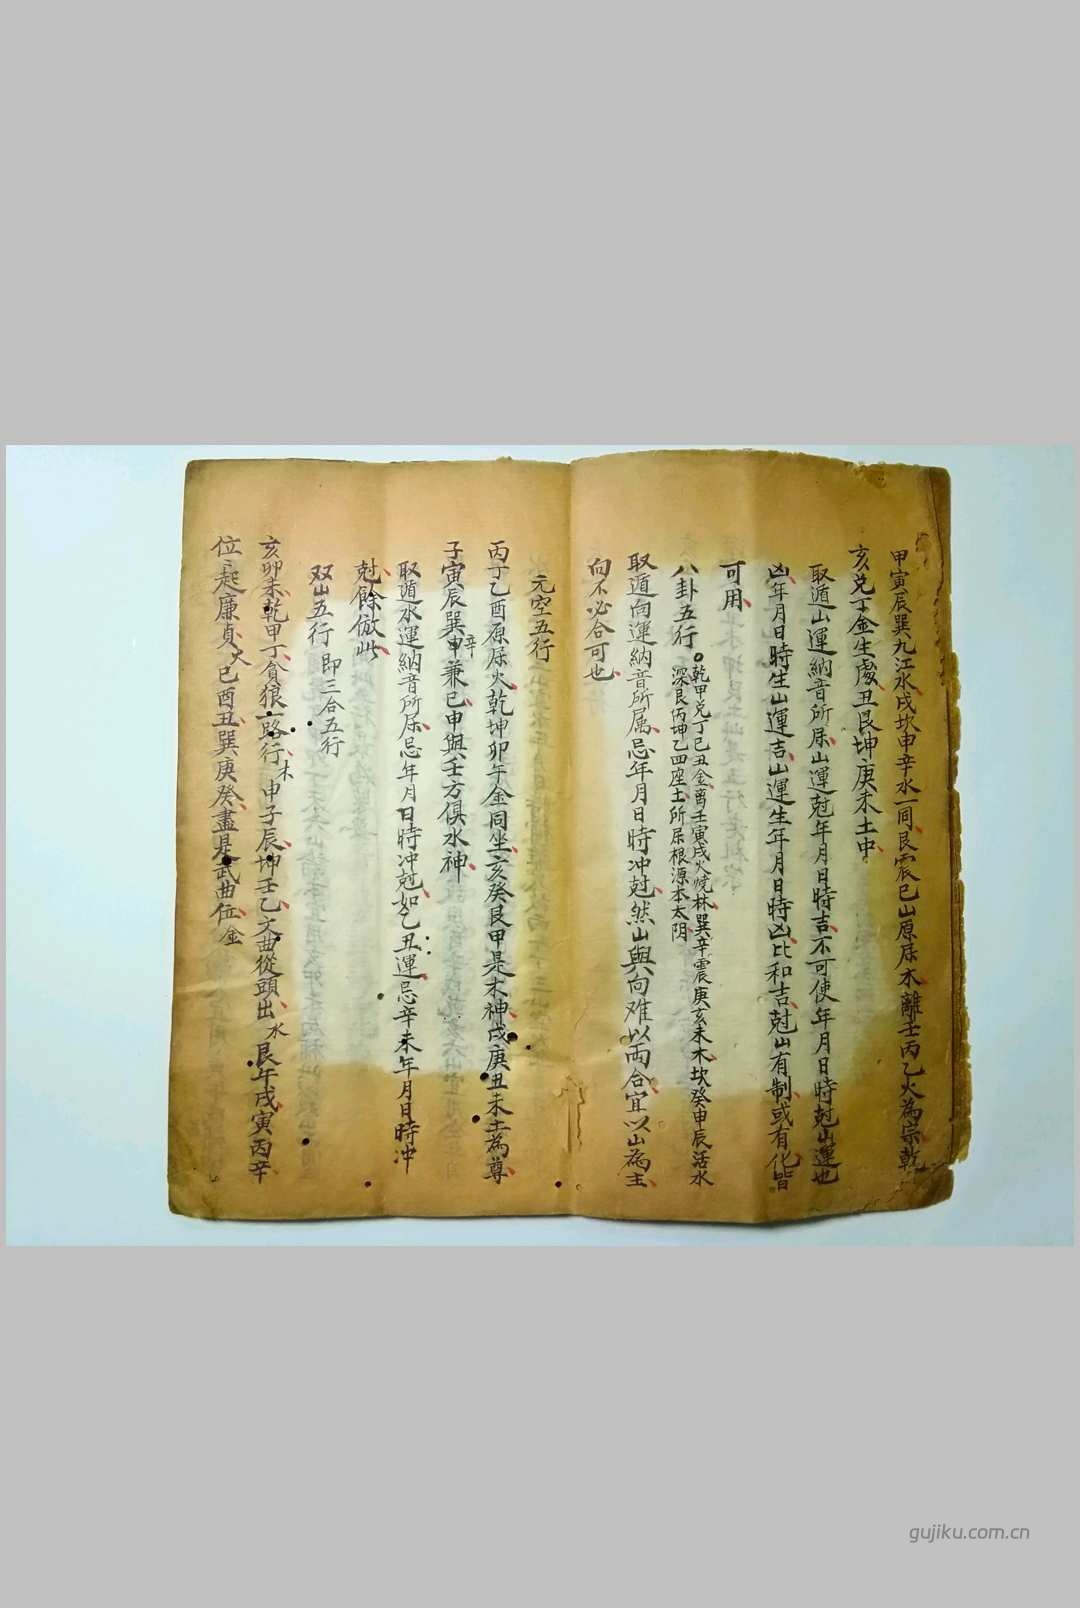 甲寅辰巽九江水戌坎申辛水一同艮震巳山原屬木離壬丙乙火為宗乾
亥兑丁金生處丑艮坤庚未土中
取遁山運納音所屬山運尅年月日時吉不可使年月日時尅山運也
凶年月日時生山運吉山運生年月日時凶比和吉尅山有制或有化皆
可用
八卦五行
乾甲兑丁巳丑金离壬寅戌火燒林巽辛震庚亥未木坎癸申辰活水
深艮丙坤乙四座土所屬根源本太阴
取遁向運納音所属忌年月日時冲尅然山與向难以両合宜以山為主
向不必合可也
元空五行
丙丁乙酉原屬火乾坤卯午金同坐亥癸艮甲是木神戌庚丑未土為尊
子寅辰巽辛兼巳申與壬方俱水神
取遁水運納音所屬忌年月日時冲尅如乙丑運忌辛未年月日時冲
尅餘倣此
双山五行 即三合五行
亥卯未乾甲丁貪狼一路行木申子辰坤壬乙文曲從頭出水艮午戌寅丙辛
位位起廉貞火巳酉丑巽庚癸盡是武曲位金
gujiku.com.cn